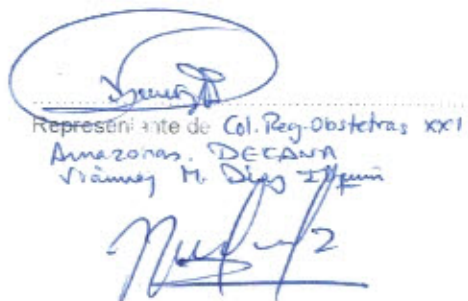 Representante de Col. Reg. Obstetras XXI
Amazonas. DECANA
Vianney M. Díaz